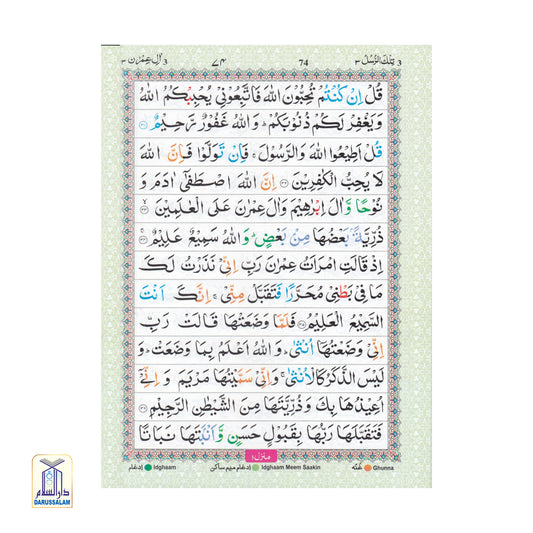 3 اٰل عِمْرٰن ٣ ٧٤ 74 تِلْكَ الرُّسُلُ ٣ 3
قُلْ اِنْ كُنْتُمْ تُحِبُّوْنَ اللّٰهَ فَاتَّبِعُوْنِيْ يُحْبِبْكُمُ اللّٰهُ
وَيَغْفِرْ لَكُمْ ذُنُوْبَكُمْ ؕ وَاللّٰهُ غَفُوْرٌ رَّحِيْمٌ ﴿۳۱﴾
قُلْ اَطِيْعُوا اللّٰهَ وَالرَّسُوْلَ ۚ فَاِنْ تَوَلَّوْا فَاِنَّ اللّٰهَ
لَا يُحِبُّ الْكٰفِرِيْنَ ﴿۳۲﴾ اِنَّ اللّٰهَ اصْطَفٰٓى اٰدَمَ وَ
نُوْحًا وَّاٰلَ اِبْرٰهِيْمَ وَاٰلَ عِمْرٰنَ عَلَى الْعٰلَمِيْنَ ﴿۳۳﴾
ذُرِّيَّةًۢ بَعْضُهَا مِنْۢ بَعْضٍ ؕ وَاللّٰهُ سَمِيْعٌ عَلِيْمٌ ﴿۳۴﴾
اِذْ قَالَتِ امْرَاَتُ عِمْرٰنَ رَبِّ اِنِّيْ نَذَرْتُ لَكَ
مَا فِيْ بَطْنِيْ مُحَرَّرًا فَتَقَبَّلْ مِنِّيْ ۚ اِنَّكَ اَنْتَ
السَّمِيْعُ الْعَلِيْمُ ﴿۳۵﴾ فَلَمَّا وَضَعَتْهَا قَالَتْ رَبِّ
اِنِّيْ وَضَعْتُهَاۤ اُنْثٰى ؕ وَاللّٰهُ اَعْلَمُ بِمَا وَضَعَتْ ؕ وَ
لَيْسَ الذَّكَرُ كَالْاُنْثٰى ۚ وَاِنِّيْ سَمَّيْتُهَا مَرْيَمَ وَ اِنِّيْۤ
اُعِيْذُهَا بِكَ وَذُرِّيَّتَهَا مِنَ الشَّيْطٰنِ الرَّجِيْمِ ﴿۳۶﴾
فَتَقَبَّلَهَا رَبُّهَا بِقَبُوْلٍ حَسَنٍ وَّاَنْۢبَتَهَا نَبَاتًا
منزل ١
Idghaam ادغام Idghaam Meem Saakin ادغام میم ساکن Ghunna غنّه
دار السلام
DARUSSALAM